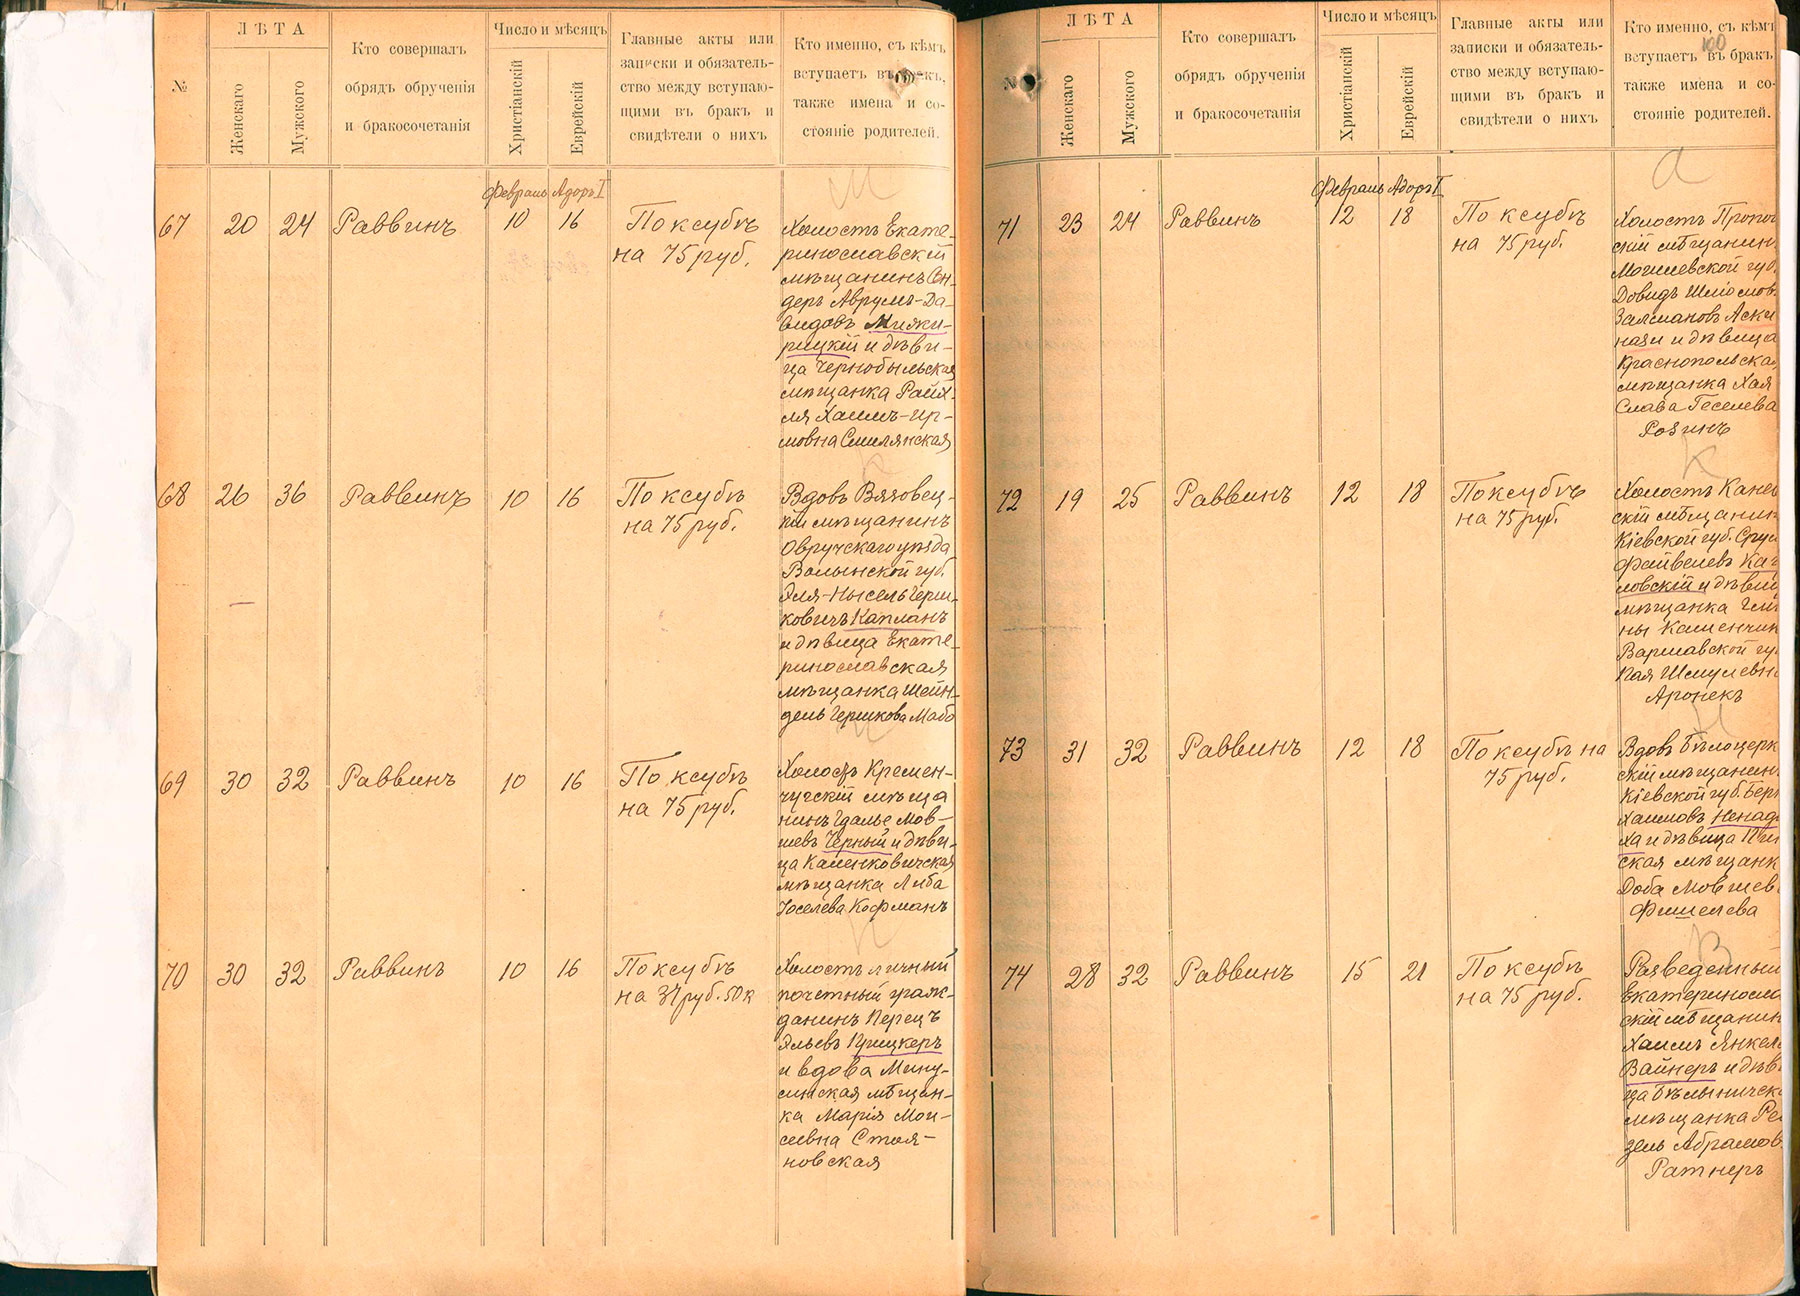 №
ЛѢТА
Женскаго
Мужского
Кто совершалъ
обрядъ обрученія
и бракосочетанія
Число и мѣсяцъ
Христіанскій
Еврейскій
Главные акты или
записки и обязатель-
ство между вступаю-
щими въ бракъ и
свидѣтели о нихъ
Кто именно, съ кѣмъ
вступаетъ въ бракъ,
также имена и со-
стояніе родителей.
Февраль Адоръ I
67 20 24 Раввинъ 10 16
По ксубѣ
на 75 руб.
Холостъ Екате-
ринославскій
мѣщанинъ Сен-
деръ Аврумъ-Да-
видовъ Мижи-
рицкій и дѣви-
ца Чернобыльская
мѣщанка Райх-
ля Хаимъ-Ир-
мовна Смилянская
68 26 36 Раввинъ 10 16
По ксубѣ
на 75 руб.
Вдовъ Вязовец-
кій мѣщанинъ
Овручскаго уѣзда
Волынской губ.
Эля-Нысель Герш-
ковичъ Капланъ
и дѣвица Екате-
ринославская
мѣщанка Шейн-
дель Гершкова Мабо
69 30 32 Раввинъ 10 16
По ксубѣ
на 75 руб.
Холостъ Кремен-
чугскій мѣща
нинъ Гдалье Мов-
шевъ Черный и дѣви-
ца Каменковичская
мѣщанка Либа
Іоселева Кофманъ
70 30 32 Раввинъ 10 16
По ксубѣ
на 37 руб. 50 к
Холостъ личный
почетный граж-
данинъ Перецъ
Эльевъ Крицкеръ
и вдова Мину-
синская мѣщан-
ка Марія Мои-
сеевна Стоя-
новская
100
№
ЛѢТА
Женскаго
Мужского
Кто совершалъ
обрядъ обрученія
и бракосочетанія
Число и мѣсяцъ
Христіанскій
Еврейскій
Главные акты или
записки и обязатель-
ство между вступаю-
щими въ бракъ и
свидѣтели о нихъ
Кто именно, съ кѣмъ
вступаетъ въ бракъ
также имена и со-
стояніе родителей.
А
Февраль Адоръ I
71 23 24 Раввинъ 12 18
По ксубѣ
на 75 руб.
Холостъ Пропой
скій мѣщанин
Могилевской губ.
Довидъ Шломов
Залмановъ Аски
нази и дѣвица
Краснопольская
мѣщанка Хая
Слава Геселева
Розинъ
К
72 19 25 Раввинъ 12 18
По ксубѣ
на 75 руб.
Холостъ Канев
скій мѣщанин
Кіевской губ. Сруль
Файвелевъ Ка
новскій и дѣвиц
мѣщанка Гми
ны Каменчик
Варшавской гу
Хая Шмулевн
Аронекъ
Н
73 31 32 Раввинъ 12 18
По ксубѣ на
75 руб.
Вдовъ Бѣлоцерк
скій мѣщанин
Кіевской губ. Берк
Хаимовъ Ненад
ха и дѣвица Пин
ская мѣщанк
Доба Мовшев
Фишелева
В
74 28 32 Раввинъ 15 21
По ксубѣ
на 75 руб.
Разведенный
Екатериносла
скій мѣщанин
Хаимъ Янкел
Вайнеръ и дѣв
ца Бѣлыническ
мѣщанка Рей
зель Абрамов
Ратнеръ